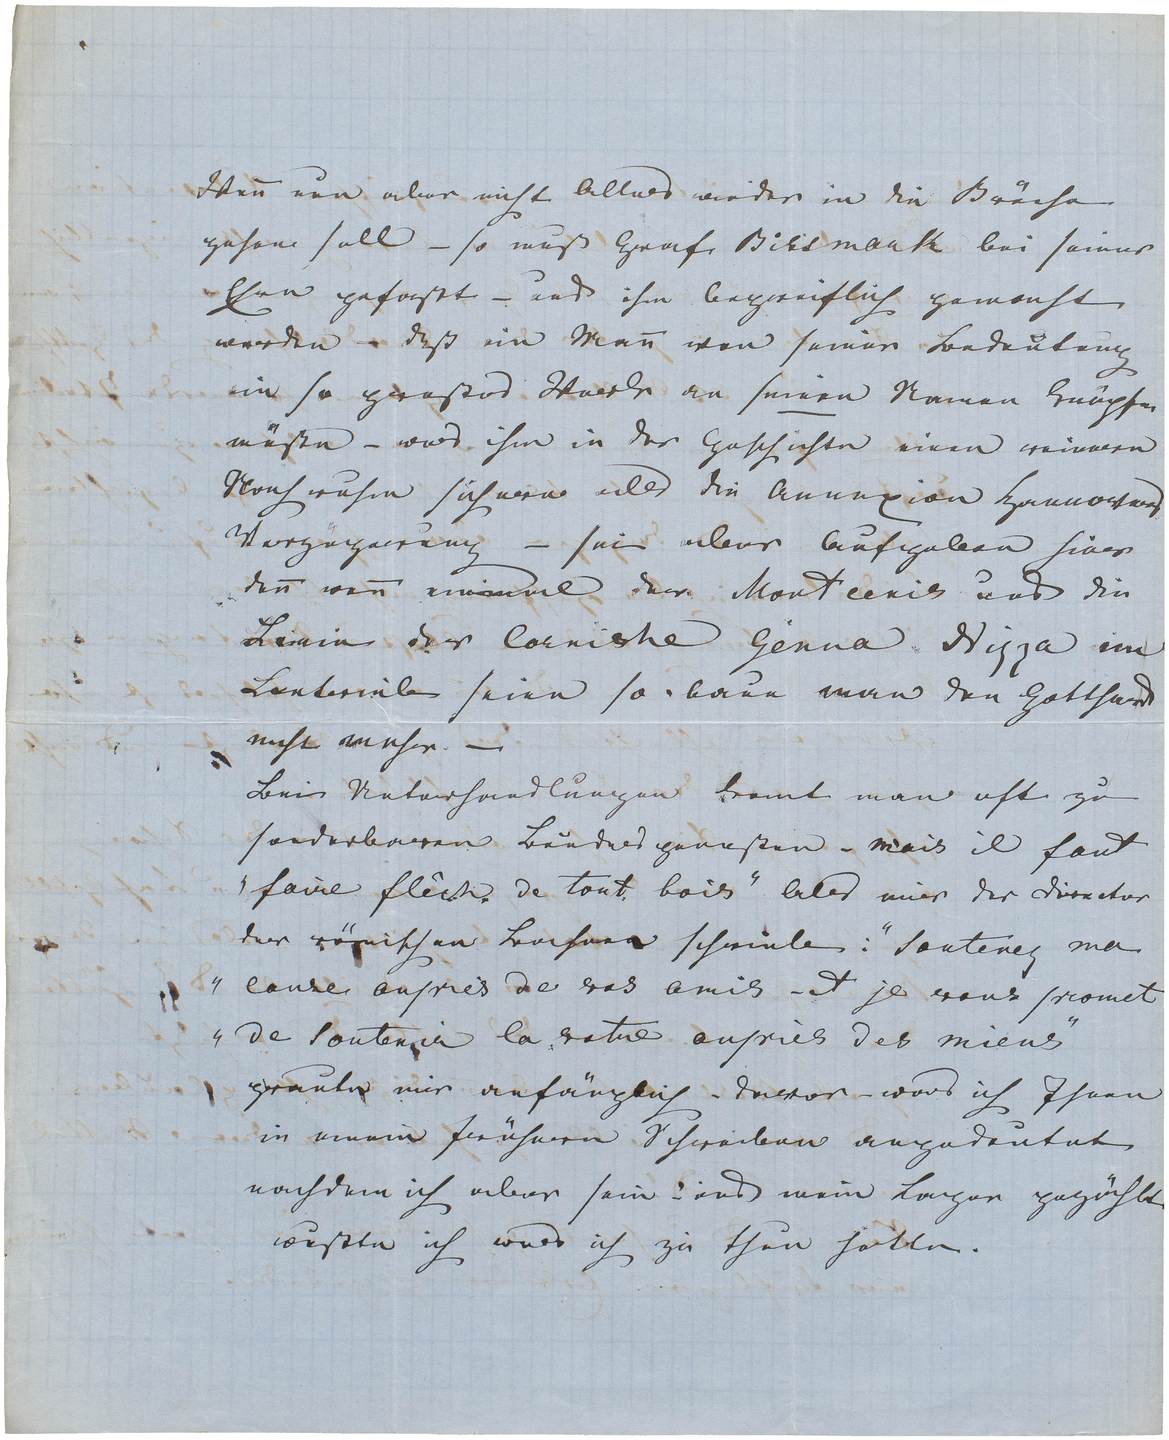 Wenn nun aber nicht Alles wieder in die Brüche
gehen soll – so muß Graf Bissmark bei seiner
Ehre gefasst – und ihm begreiflich gemacht
werden – daß ein Mann von seiner Bedeutung
ein so grosses Werk an seinen Namen knüpfen
müsse – was ihm in der Geschichte einen reineren
Nachruhm sichere als die Annexion Hannovers
Verzögerung – sei aber Aufgeben hier
denn wenn einmal der Montcenis und die
Linie der Corniche Genua Nizza im
Betriebe seien so baue man den Gotthard
nicht mehr. –
Bei Unterhandlungen kommt man oft zu
sonderbaren Bundesgenossen – mais il faut
"faire flêche de tout bois" Als mir der Director
der römischen Bahnen schrieb: "Soutenez ma
" cause auprès de vos amis – et je vous promet
" de soutenir la votre auprès des miens"
graute mir anfänglich – davor – was ich Ihnen
in einem frühern Schreiben angedeutet
nachdem ich aber sein – und mein Lager gezählt
wusste ich was ich zu thun hatte.